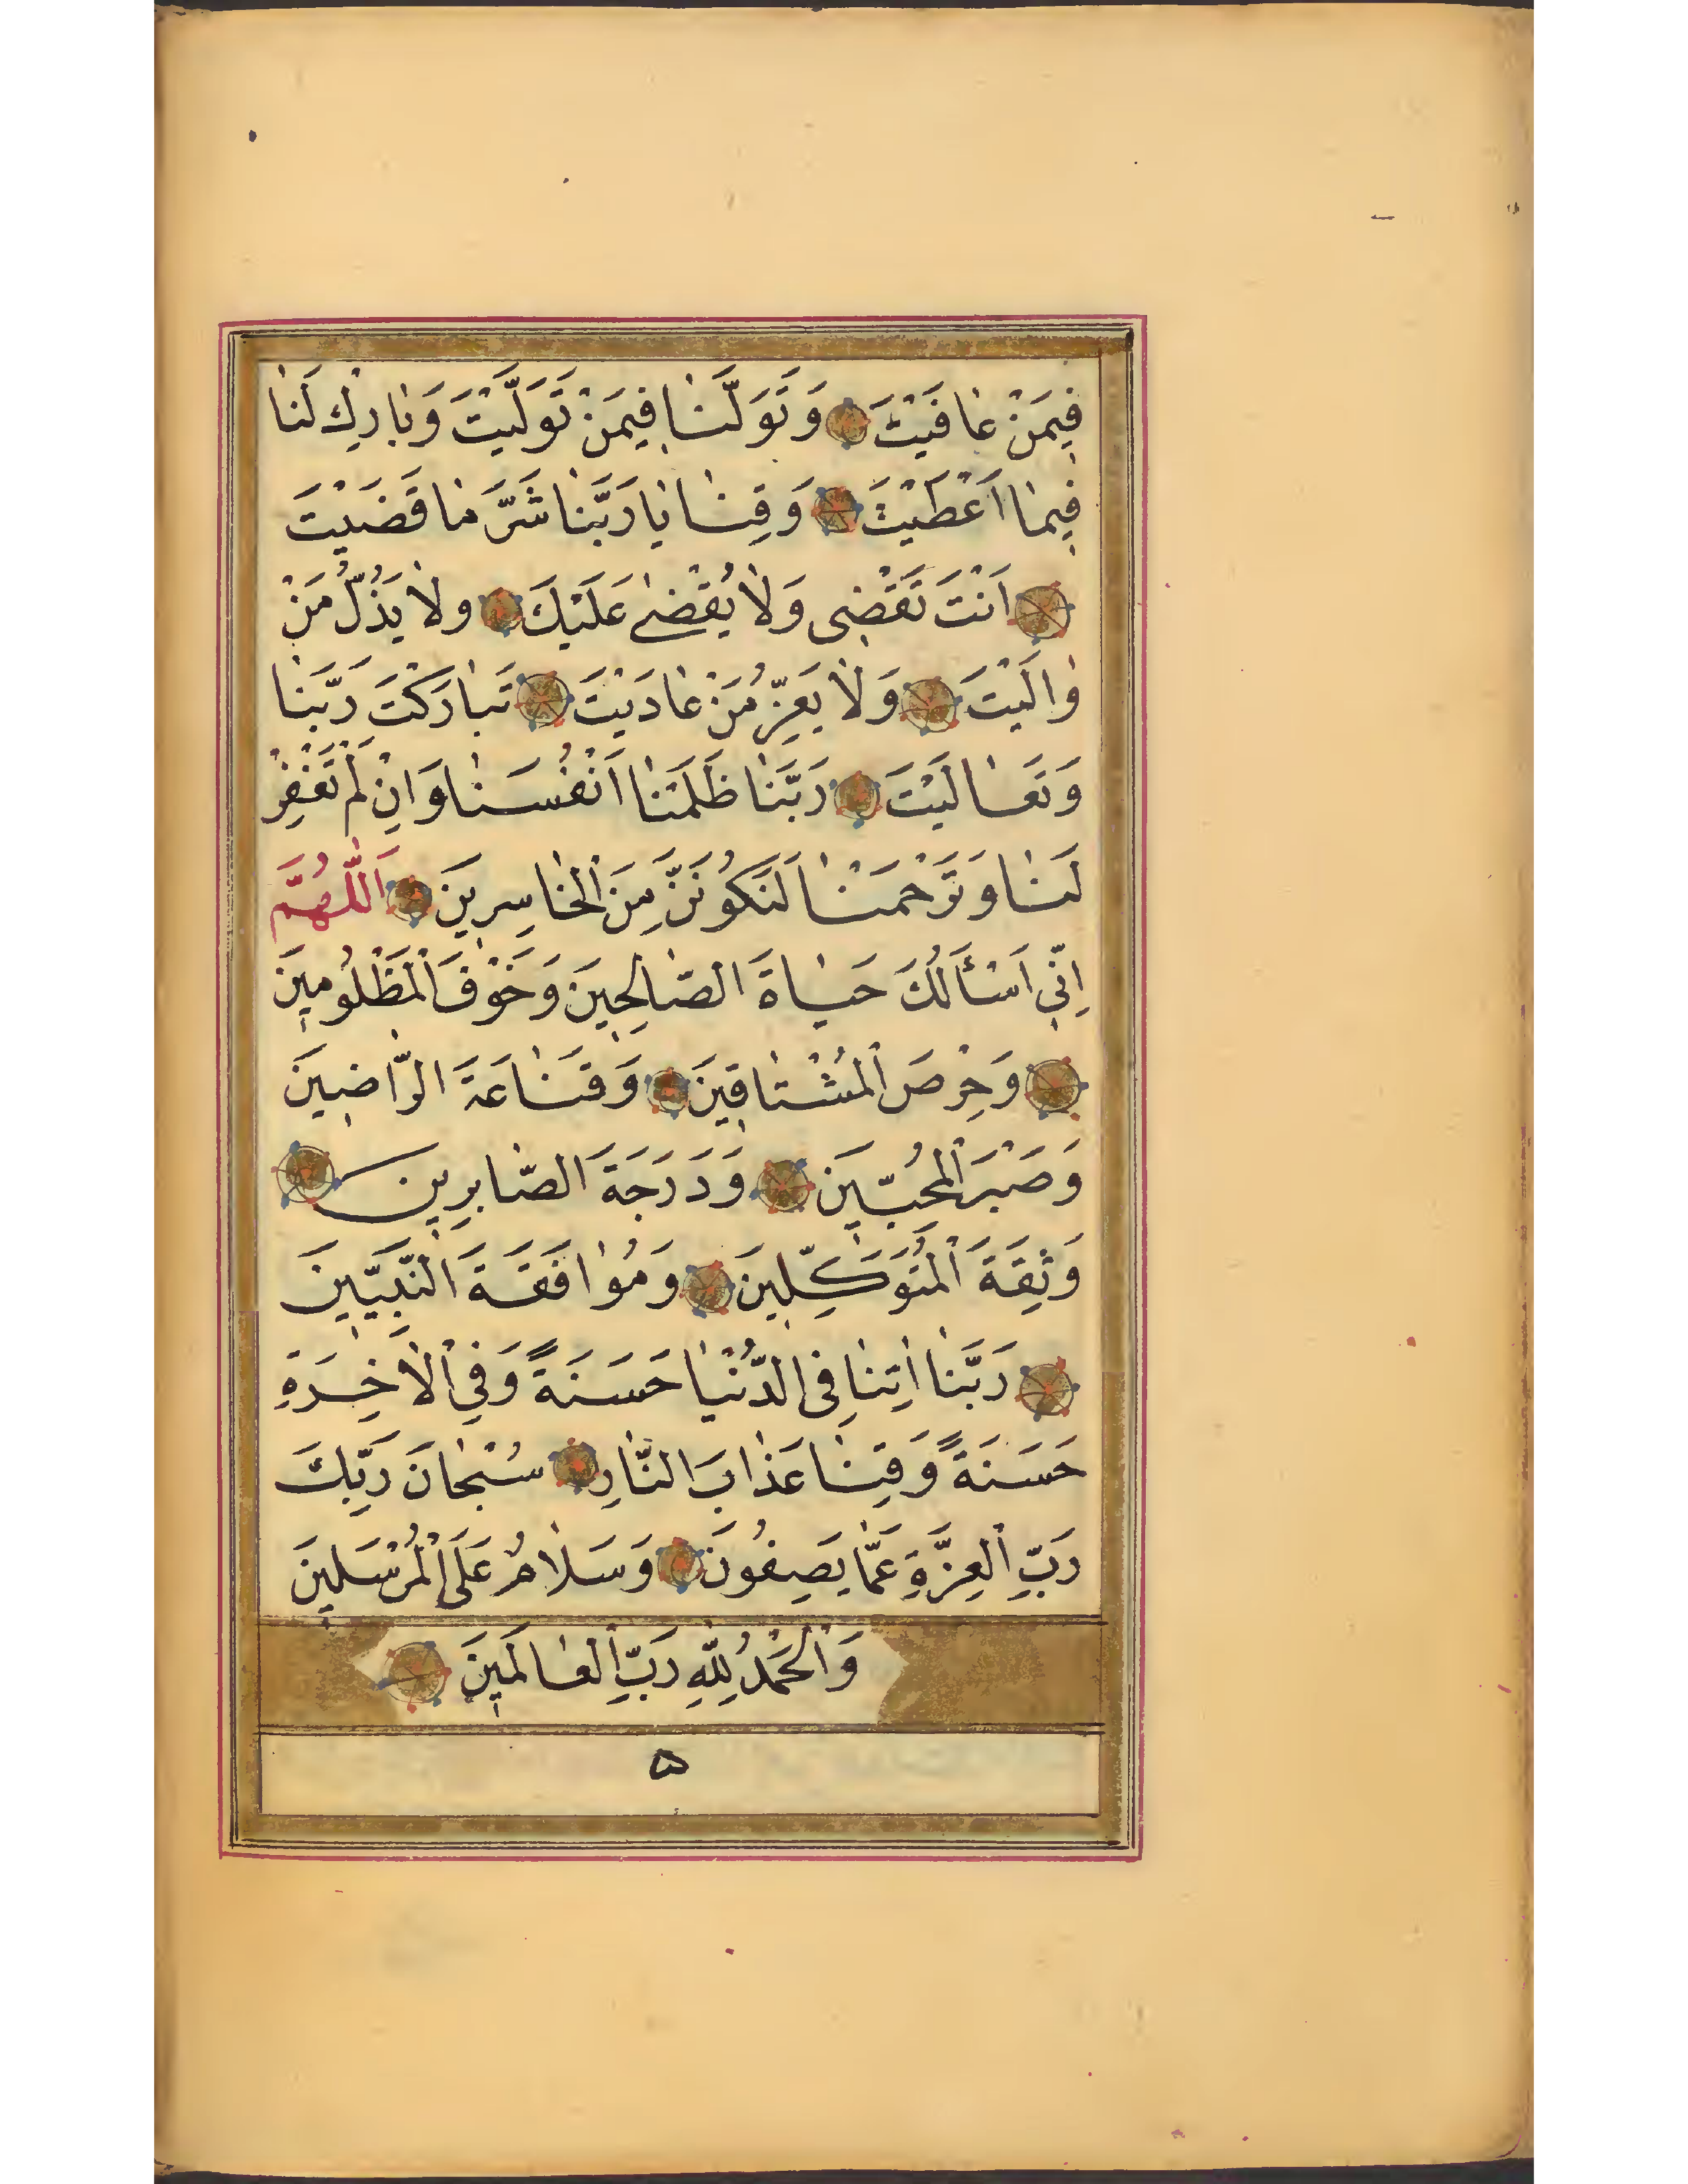 فِيمَنْ عٰافَيْتَ وَتَوَلَّنٰا فِيمَنْ تَوَلَّيْتَ وَبٰارِكْ لَنٰا
فِيمٰا اَعْطَيْتَ وَقِنٰا يٰا رَبَّنٰا شَرَّ مٰا قَضَيْتَ
اَنْتَ تَقْضِى وَلٰا يُقْضىٰ عَلَيْكَ ولٰا يَذُلُّ مَنْ
وٰالَيْتَ وَلٰا يَعِزُّ مَنْ عٰادَيْتَ تَبٰارَكْتَ رَبَّنٰا
وَتَعٰالَيْتَ رَبَّنٰا ظَلَمْنٰا اَنْفُسَنٰا وَاِنْ لَمْ تَغْفِرْ
لَنٰا وَتَرْحَمْنٰا لَنَكُونَنَّ مِنَ الْخٰاسِرِينَ اَللّٰهُمَّ
اِنِّي اَسْئَالُكَ حَيٰاةَ الصّٰالِحِينَ وَخَوْفَ الْمَظْلُومِينَ
وَحِرْصَ الْمُشْتٰاقِينَ وَقَنٰاعَةَ الرّٰاضِينَ
وَصَبْرَ الْمُحِبّينَ وَدَرَجَةَ الصّٰابِرِينَ
وَثِقَةَ الْمُتَوَكِّلِينَ وَمُوٰافَقَةَ النَّبِيّينَ
رَبَّنٰا اٰتِنٰا فِى الدُّنْيٰا حَسَنَةً وَفِي الْاٰخِرَةِ
حَسَنَةً وَقِنٰا عَذٰابَ النّٰارِ سُبْحٰانَ رَبِّكَ
رَبِّ الْعِزَّةِ عَمّٰا يَصِفُونَ وَسَلٰامٌ عَلَى الْمُرْسَلِينَ
وَالْحَمْدُ لِلّٰهِ رَبِّ الْعٰالَمِينَ
۵